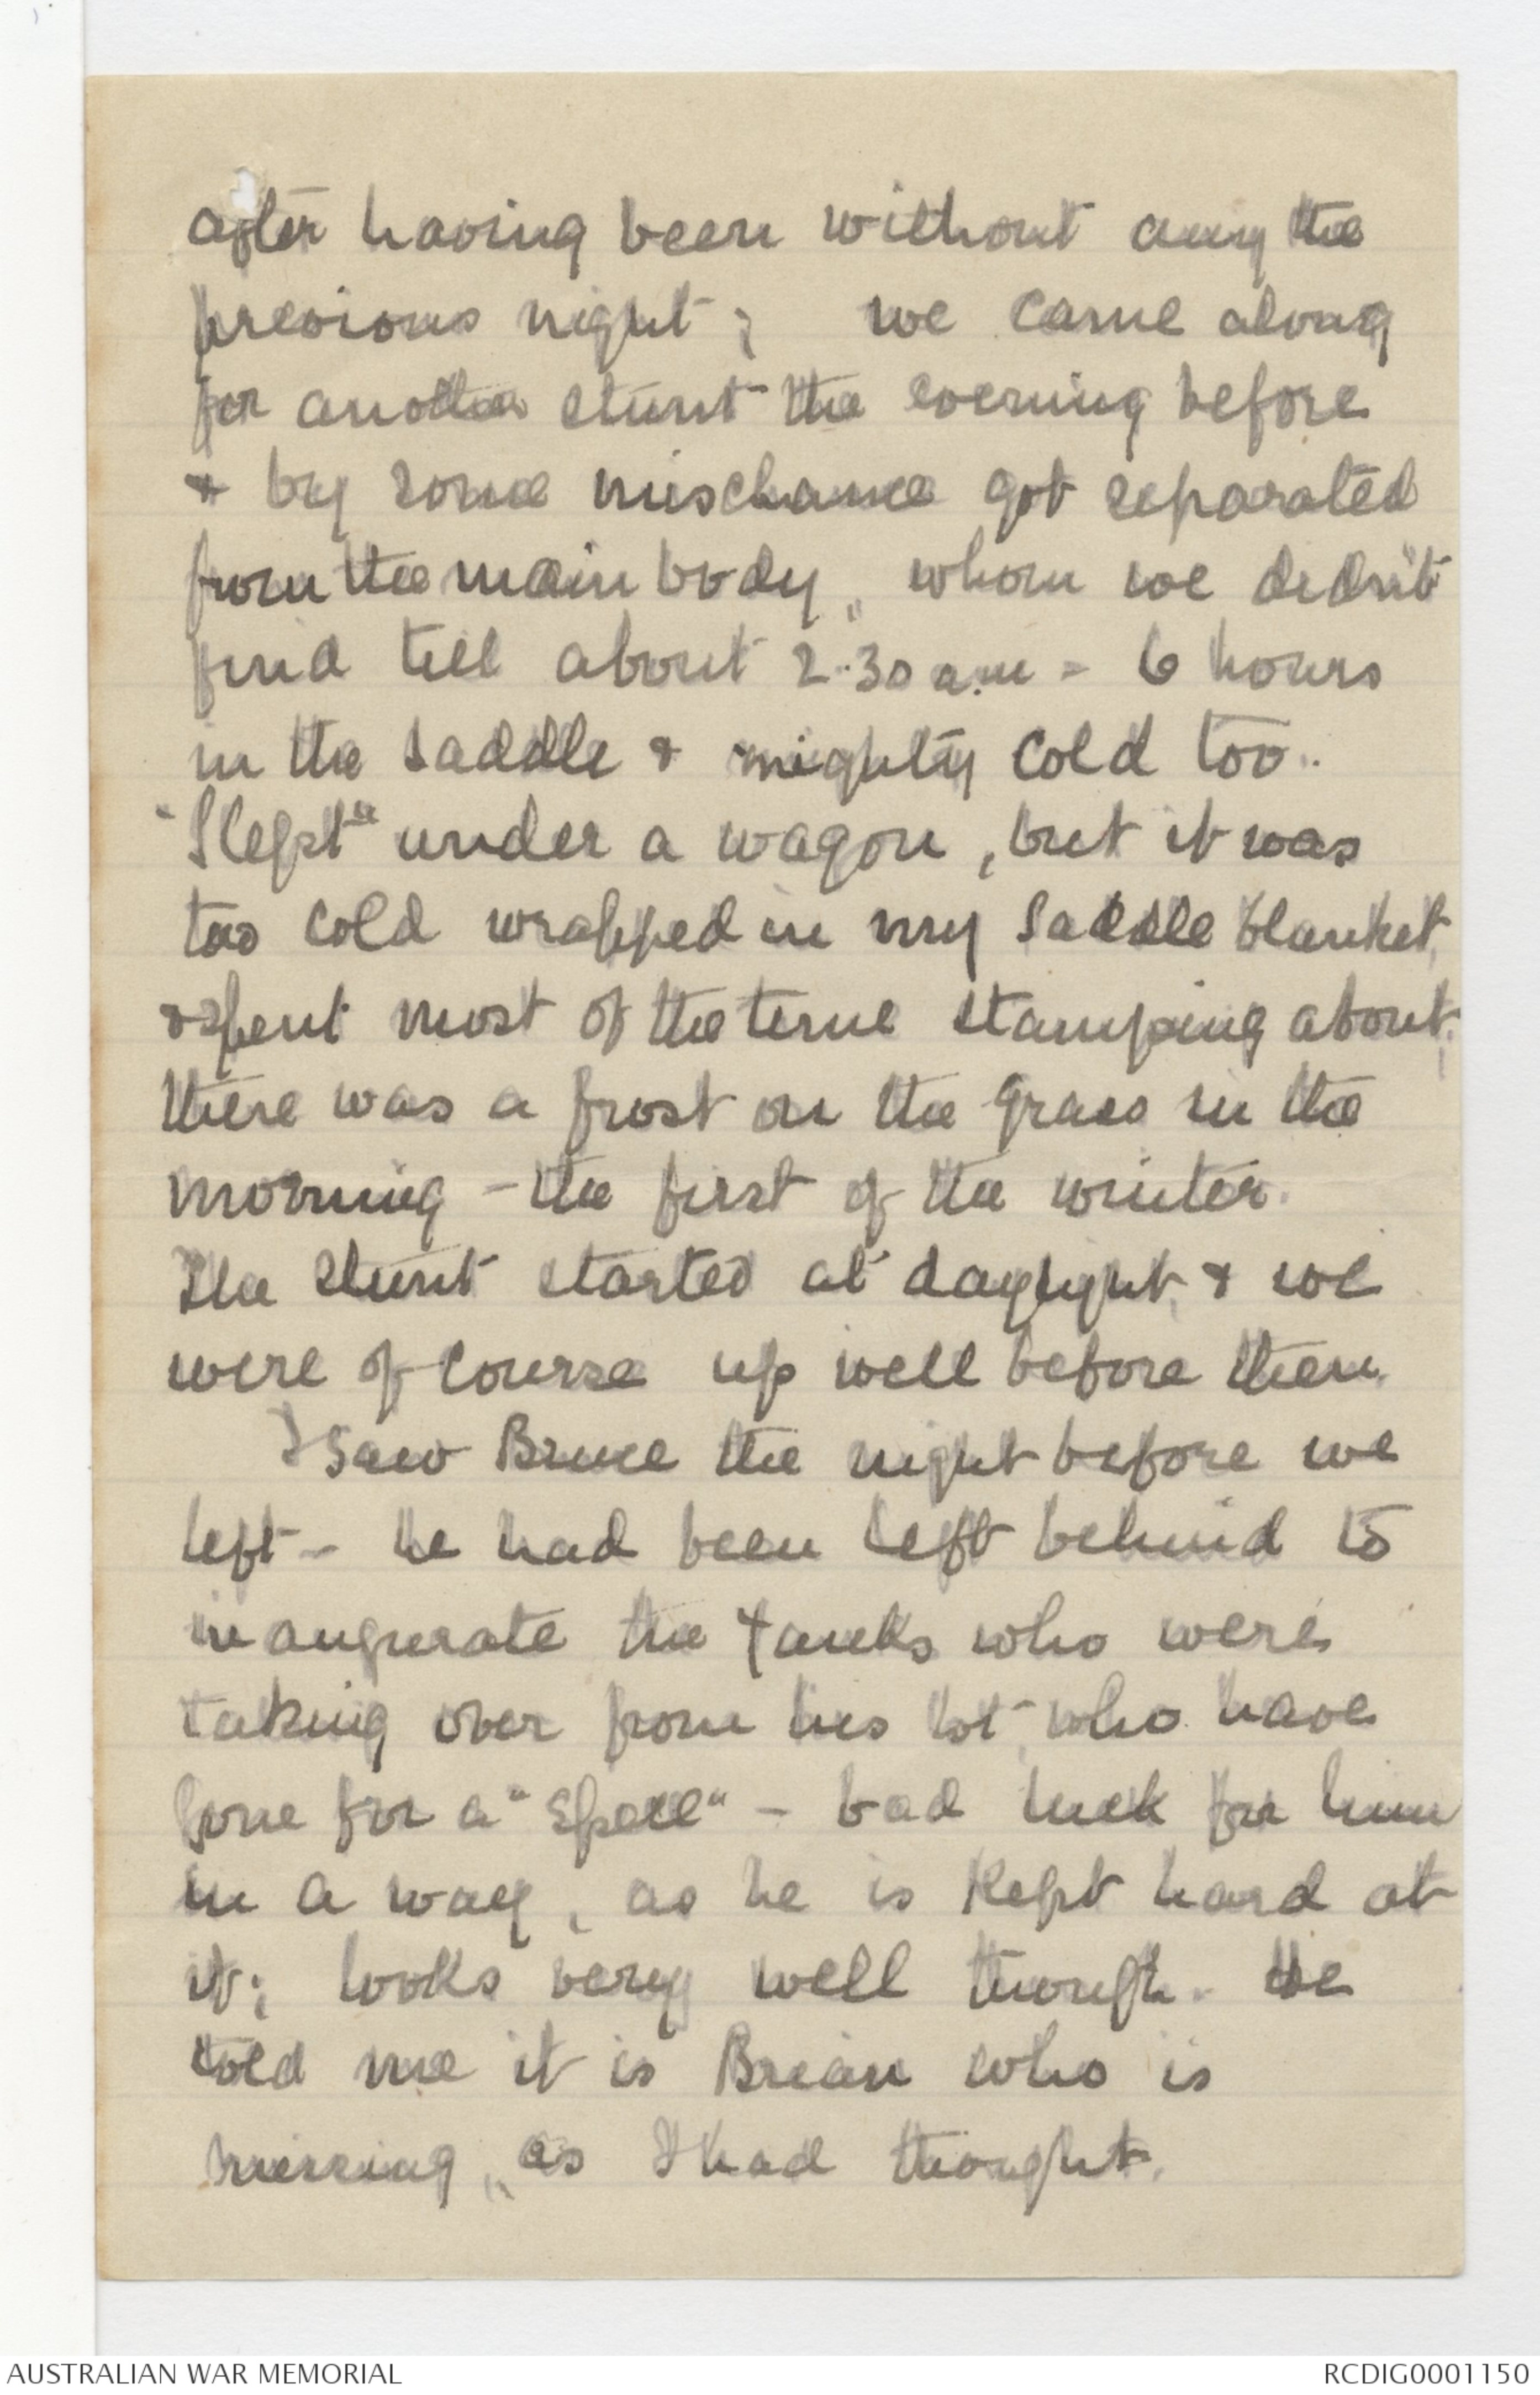 after having been without any the
previous night; we came along
for another stunt the evening before
& by some mischance got separated
from the main body, whom we didn't
find till about 2.30 a.m - 6 hours
in the saddle & mighty cold too.
"Slept" under a wagon, but it was
too cold wrapped in my saddle blanket,
& spent most of the time stamping about;
there was a frost on the grass in the
morning - the first of the winter.
The stunt started at daylight, & we
were of course up well before then.
I saw Bruce the night before we
left - he had been left behind to
inaugurate the Yanks who were
taking over from his lot, who have
gone for a "spell" - bad luck for him
in a way, as he is kept hard at
it; looks very well though. He
told me it is Brian who is
missing, as I had thought.
AUSTRALIAN WAR MEMORIAL
RCDIG0001150